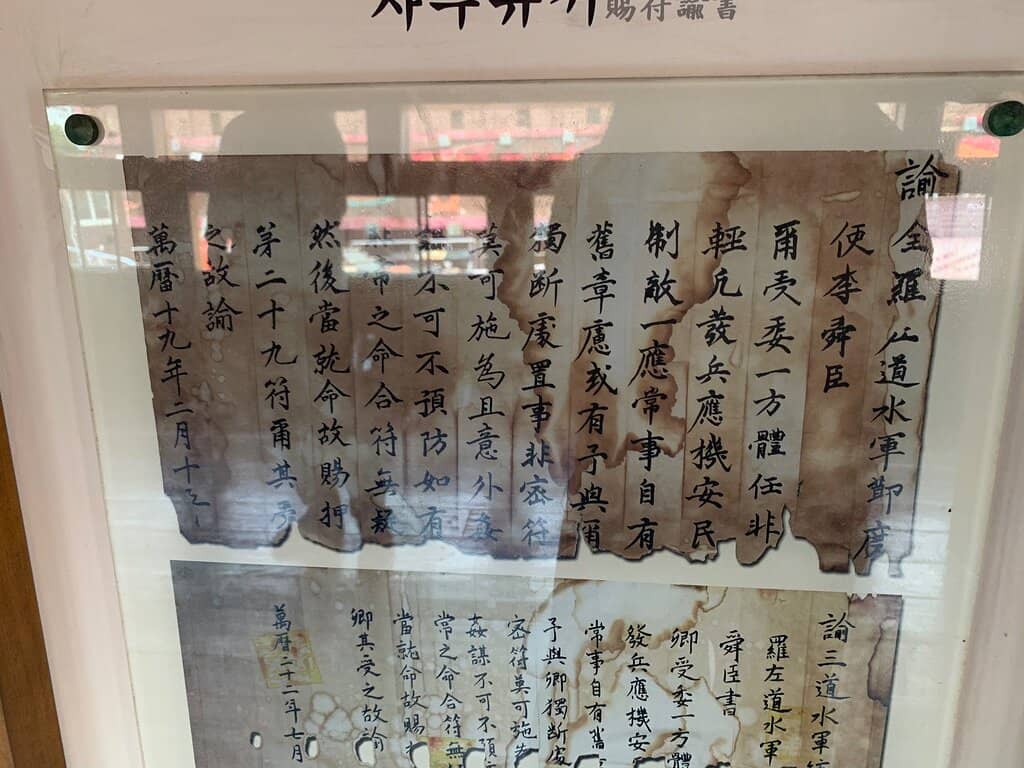 사부유서 賜符諭書
諭
全羅左道水軍節度
使李舜臣
爾受委一方體任非
輕凡發兵應機安民
制敵一應常事自有
舊章慮或有予與爾
獨斷處置事非密符
莫可施爲且意外姦
謀不可不預防如有
非常之命合符無疑
然後當就命故賜押
第二十九符爾其受
之故諭
萬曆十九年二月十五
諭三道水軍
羅左道水軍
舜臣書
卿受委一方體
發兵應機安
常事自有舊
予與卿獨斷處
密符莫可施為
姦謀不可不預
常之命合符無
當就命故賜
卿其受之故諭
萬曆二十二年七月